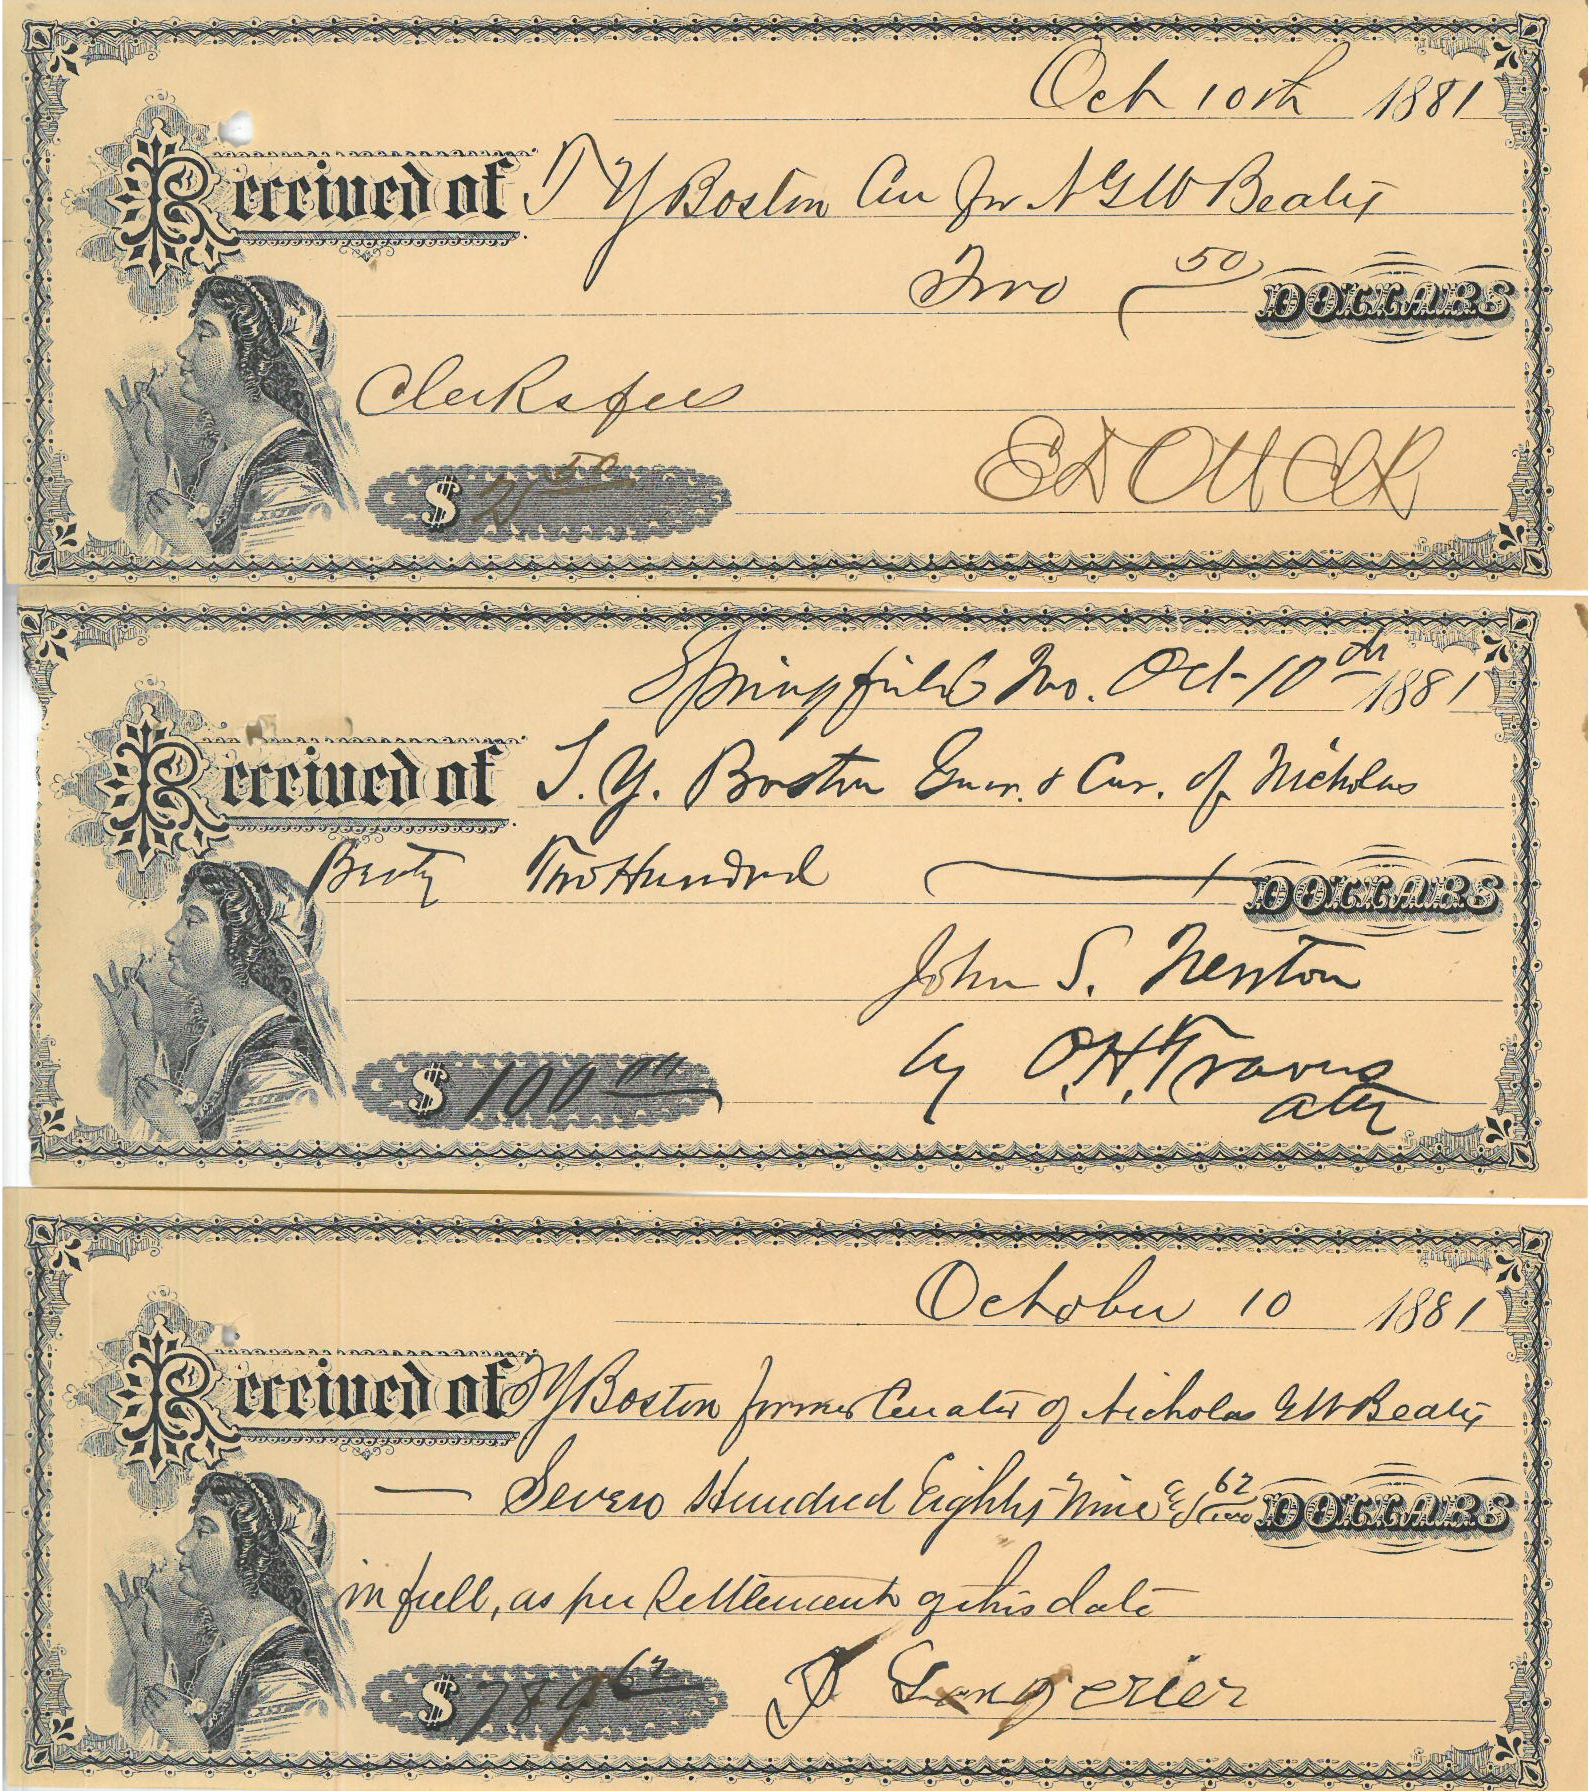 Oct 10th 1881
Received of T Y Boston Cur for N G W Beaty
Two 50 DOLLARS
Clerks fees
$ 2 50
E D Ott Clk
Springfield Mo. Oct-10th 1881
Received of T. Y. Boston Guar. & Cur. of Nicholas
Beaty Two Hundred DOLLARS
John S. Newton
$ 100 00
by O. H. Travers
atty
October 10 1881
Received of T Y Boston former Curator of Nicholas G W Beaty
— Seven Hundred Eighty Nine & 62/100 DOLLARS
in full, as per Settlement of this date
$ 789 62